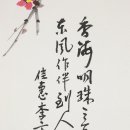 香海明珠三
东风作伴到人
佳惠李